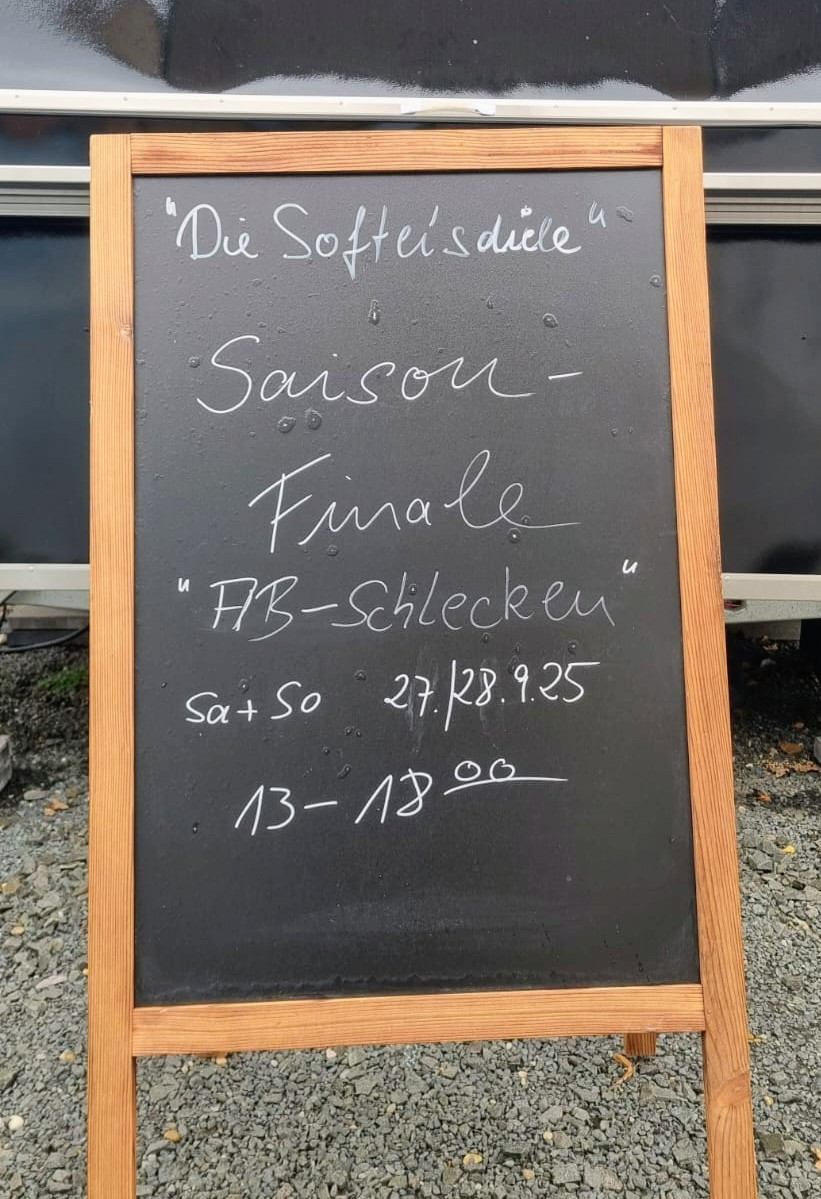 "Die Softeisdiele"
Saison-
Finale
"AB-Schlecken"
Sa+So 27./28.9.25
13-18 00